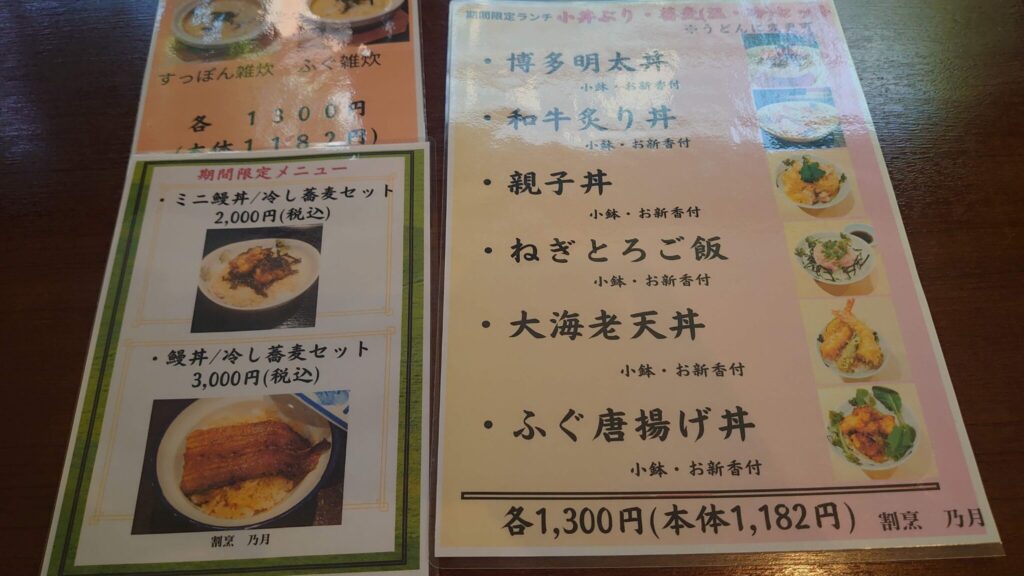 すっぽん雑炊　ふぐ雑炊
各　１３００円
(本体１１８２円)
期間限定メニュー
・ミニ鰻丼/冷し蕎麦セット
2,000円(税込)
・鰻丼/冷し蕎麦セット
3,000円(税込)
割烹　乃月
期間限定ランチ 小丼ぶり・蕎麦(温・冷)セット
・博多明太丼
小鉢・お新香付
・和牛炙り丼
小鉢・お新香付
・親子丼
小鉢・お新香付
・ねぎとろご飯
小鉢・お新香付
・大海老天丼
小鉢・お新香付
・ふぐ唐揚げ丼
小鉢・お新香付
各1,300円(本体1,182円)　割烹　乃月